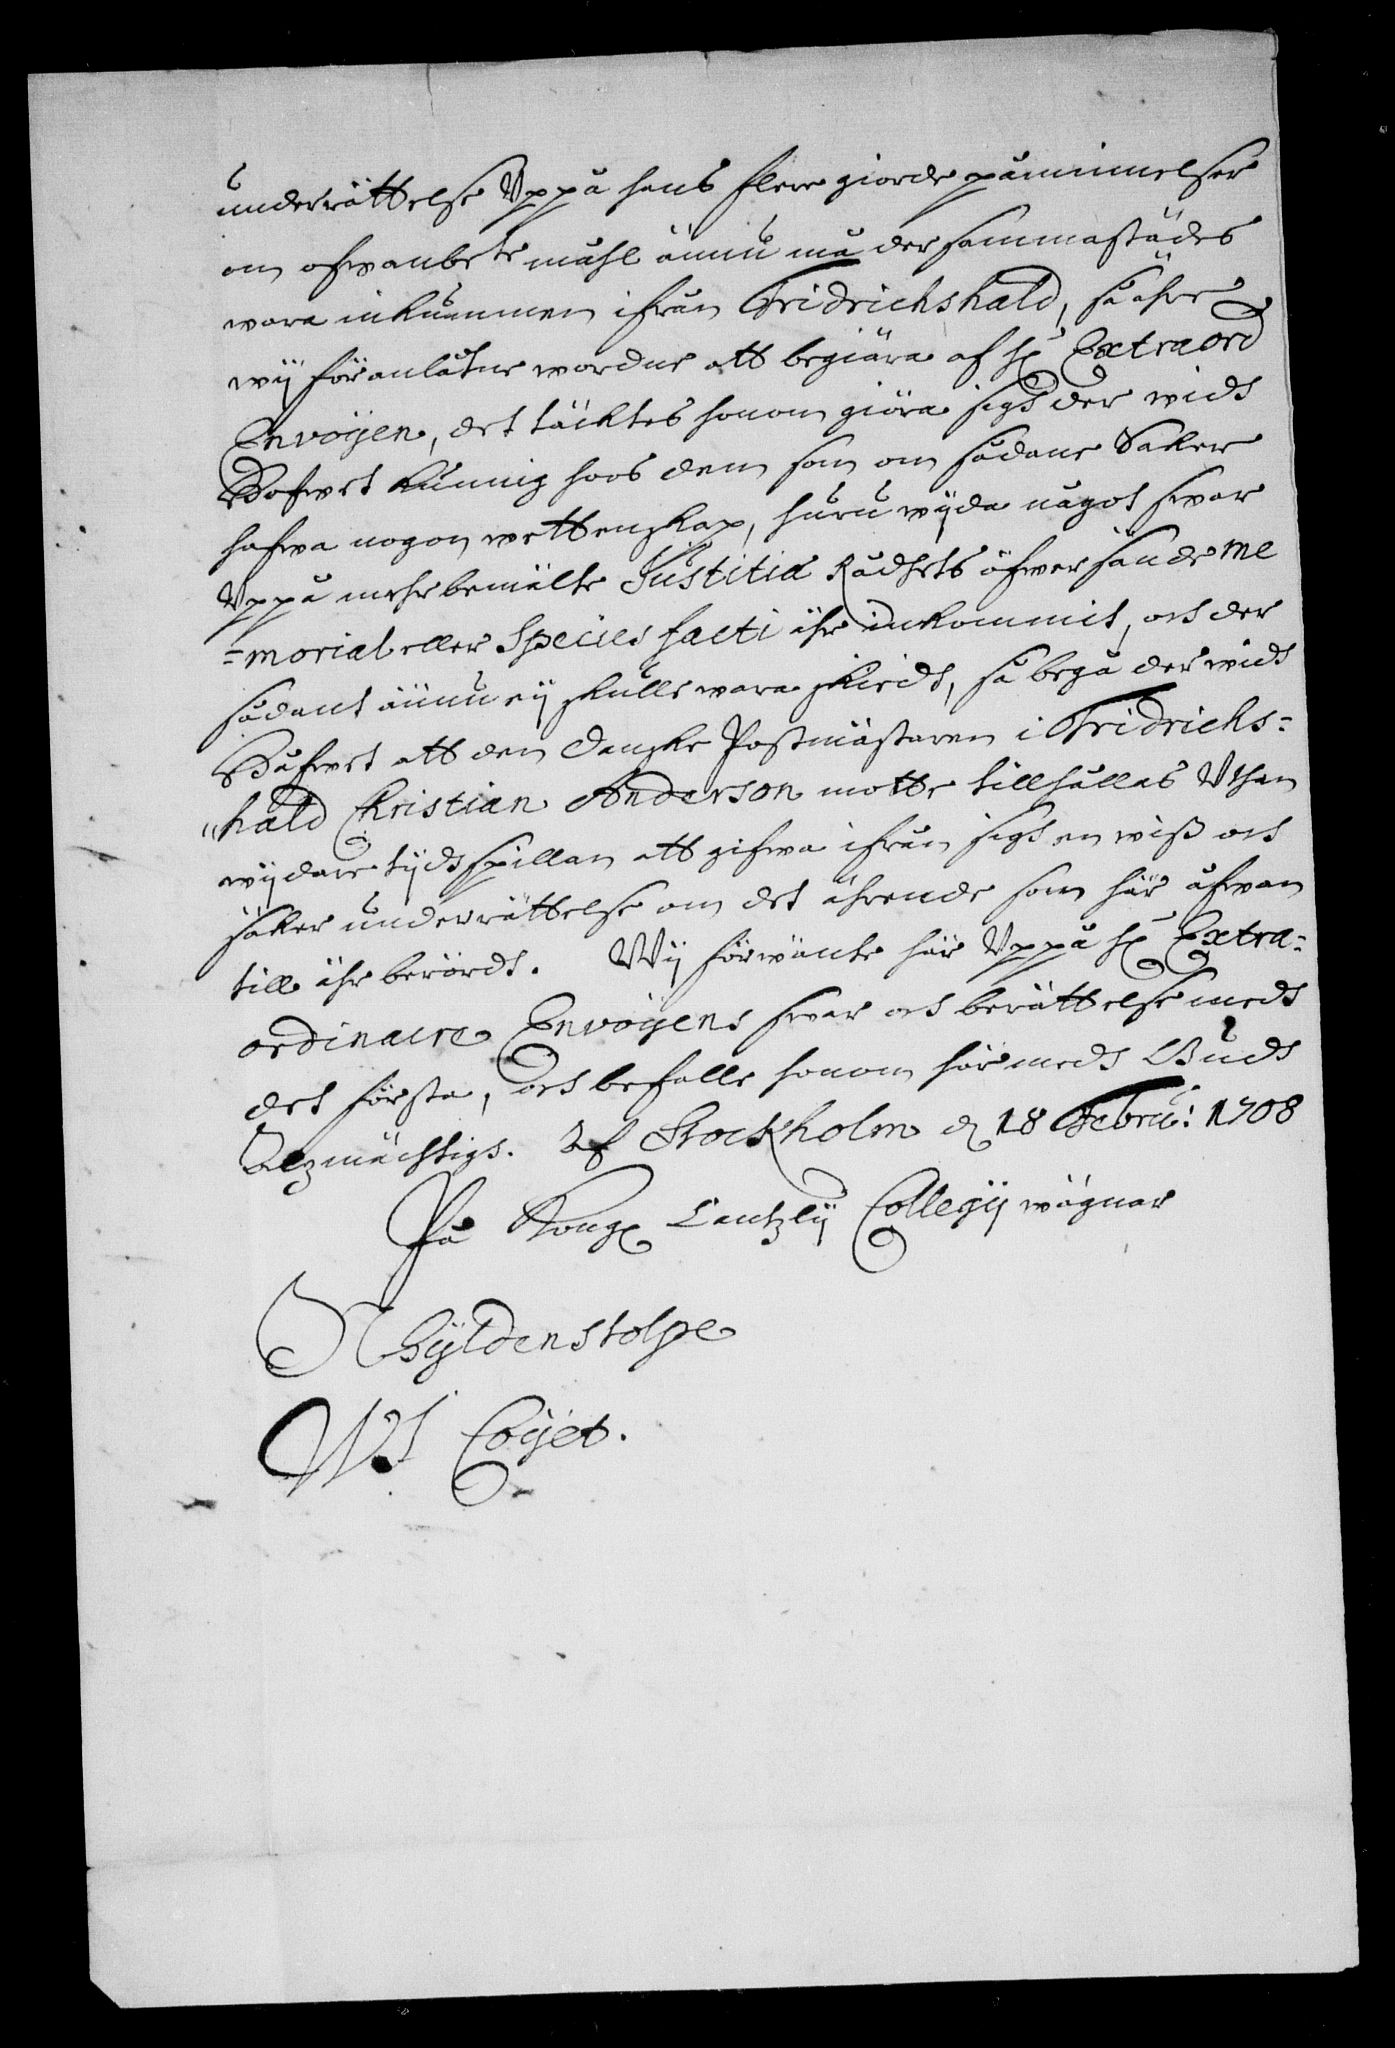 underrättelse Uppå hans flere giorde påminnelser
om ofwanbete måhl ännu må dersammastädes
wara inkummen ifrån Fridrichshald, så ähre
wij föranlåtne wordne att begiära af H: Extraord
Envoijen, det täcktes honom giöra sigh der widh
Hofwet kunnig hoos dem som om sådane saker
hafwa nogon wettenskap, huru wijda något swar
Uppå mehrbemälte Justitiæ Rådhets öfwersände me
=morial eller Species facti ähr inkommit, och der
sådant ännu eij skulle wara skiedt, så begå der widh
Håfwet att den danske Postmästaren i Fridrichs=
"hald Christian Anderson motte tillhållas Uthan
wijdare tijdspillan att gifwa ifrån sigh en wiß och
säker underrättelse om det ährende som här åfwan
till ähr berördt. Wij förwänte här Uppå H: Extra=
ordinaire Envoijens swar och berättelse medh
det första, och befalle honom här medh Gudh
Alzmächtigh. Af Stockholm d 18 Febru: 1708
På Kongl Cantzlij Collegij wägnar
N Gyldenstolpe
WJ Coijet.